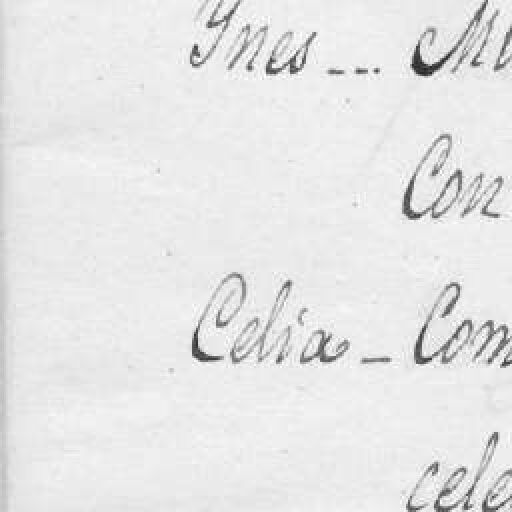 Ynes --- Mu
Con
Celia - Com
cele